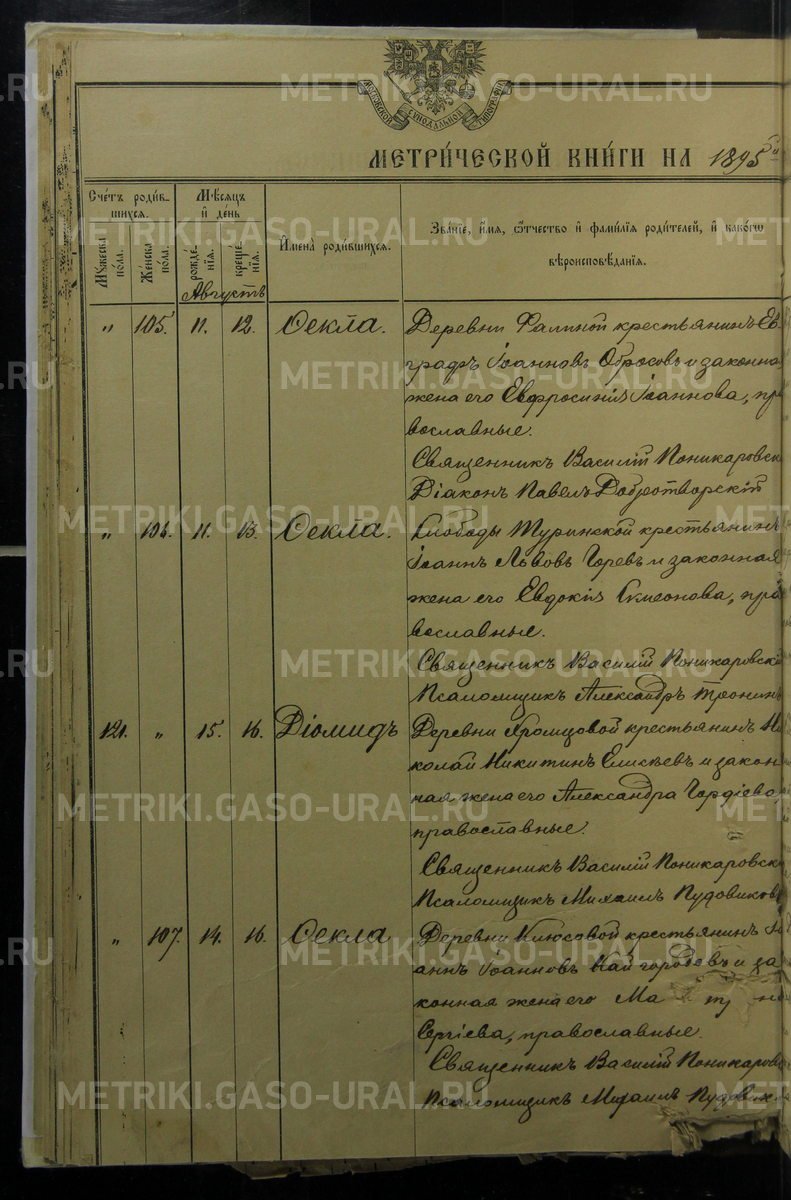 МОСКОВСКОЙ СУНОДАЛЬНОЙ ТИПОГРАФІИ
METRIKI.GASO-URAL.RU
МЕТРИ́ЧЕСКОЙ КНИ́ГИ НА 1895й
Сче́тъ роди́в-
шихсѧ.
Мѣ́сѧцъ
и҆ де́нь
Имена̀ роди́вшихсѧ.
Зва́нїе, и҆́мѧ, ѻ҆́тчество и҆ фами́лїѧ роди́телей, и҆ како́гѡ
вѣроисповѣ́данїѧ.
Мꙋ́жеска
по́ла.
Же́нска
по́ла.
рожде́-
нїѧ.
креще́-
нїѧ.
Августъ
" 105. 11. 12. Ѳекла. Деревни Фалиной крестьянинъ Ев
графъ Іоанновъ Обросовъ и законна
жена его Евфросинія Іоаннова, пра
вославные.
Священникъ Василій Поникаровск
Діаконъ Павелъ Добротворскій
" 106. 11. 13. Ѳекла. Слободы Туринской крестьянинъ
Іоаннъ Львовъ Горевъ и законная
жена его Евдокія Симеонова, пра
вославные.
Священникъ Василій Поникаровскі
Псаломщикъ Александръ Тронинъ
121. " 15. 16. Діомидъ Деревни Хромцовой крестьянинъ Ни
колай Никитинъ Елисѣевъ и закон
ная жена его Александра Гордіева,
православные.
Священникъ Василій Поникаровск
Псаломщикъ Михаилъ Пудовиковъ
" 107. 14. 16. Ѳекла Деревни Клюсовой крестьянинъ Іо
аннъ Іоанновъ Кайгородовъ и за
конная жена его
Сергіева, православные.
Священникъ Василій Поникаров
Псаломщикъ Михаилъ Пудовик